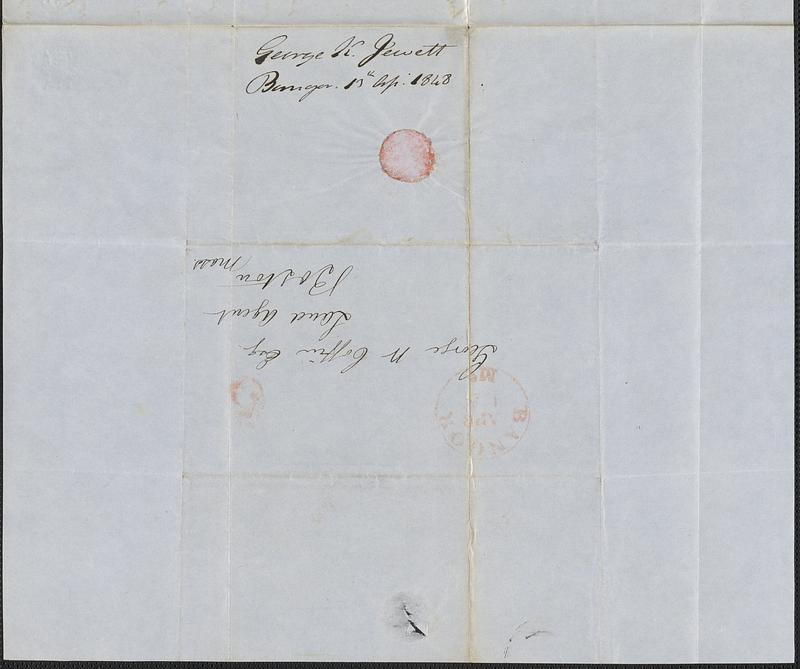 George K. Jewett
Bangor. 15th Ap. 1848
George W Coffin Esq
Land Agent
Boston
Mass
BANGOR
Me
APR